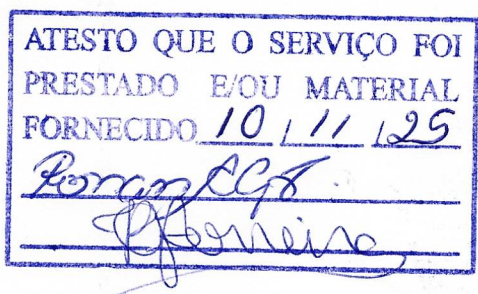 ATESTO QUE O SERVIÇO FOI
PRESTADO E/OU MATERIAL
FORNECIDO 10 / 11 / 25
Ferreira